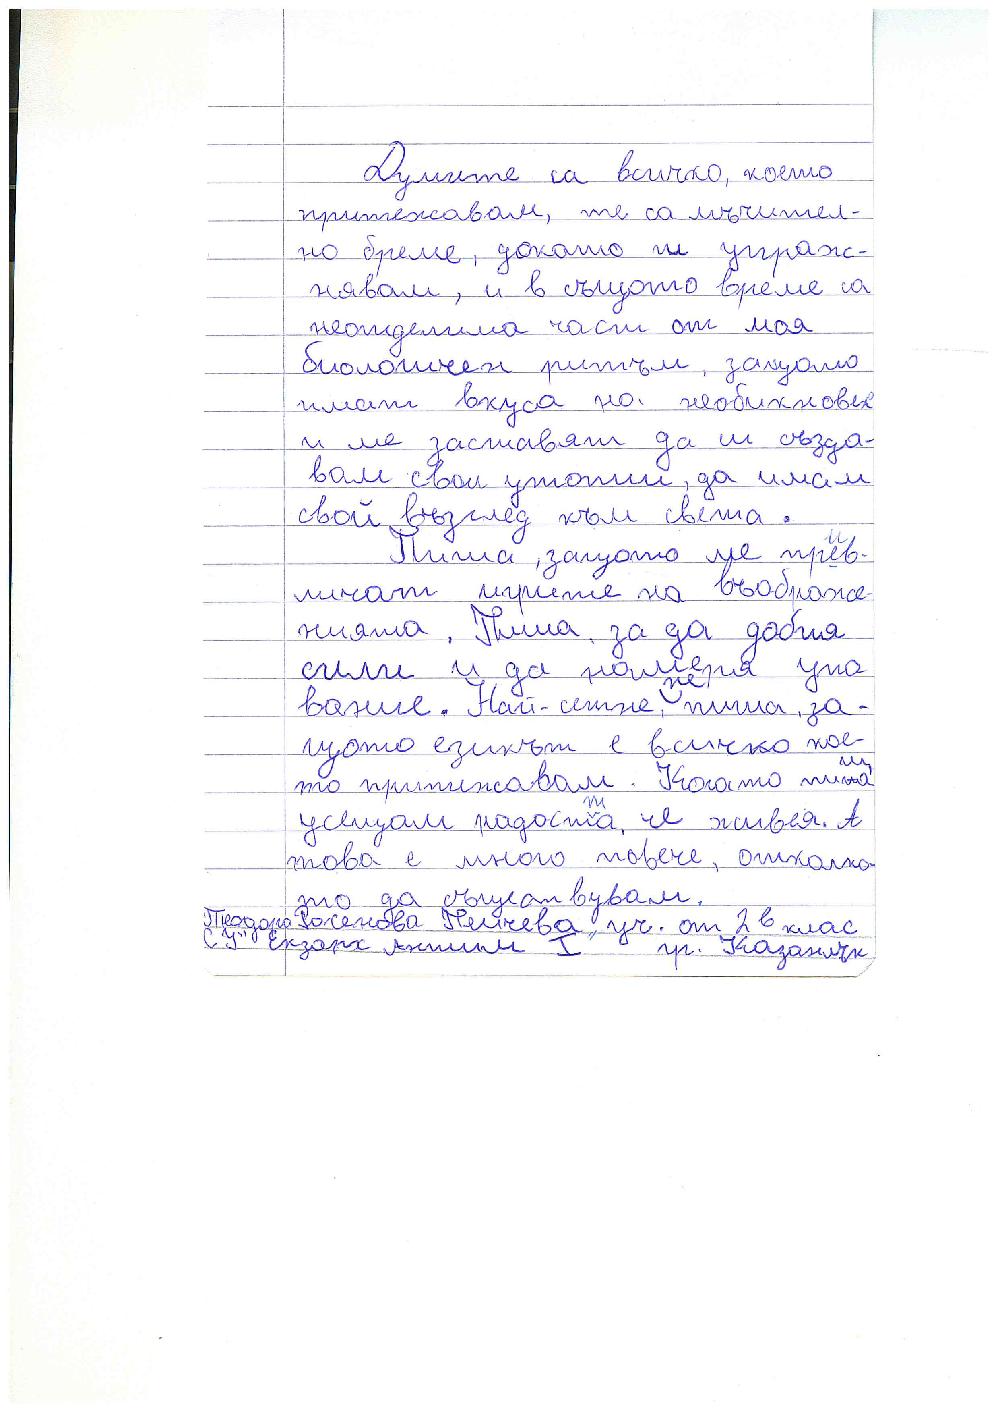 Думите са всичко, което
притежавам, те са мъчител-
но бреме, докато ги упраж-
нявам, и в същото време са
неотделима част от моя
биологичен ритъм, защото
имат вкуса на необикновен
и ме заставят да си създа-
вам свои утопии, да имам
свой възглед към света.
Пиша, защото ме прив-
личат игрите на въображе-
нията. Пиша, за да добия
сили и да намеря упо
вание. Най-сетне, пиша, за-
щото езикът е всичко кое-
то притежавам. Когато пиша
усещам радостта, че живея. А
това е много повече, отколко-
то да съществувам.
Теодора Росенова Пейчева, уч. от 2 в клас
СУ" Екзарх Антим I гр. Казанлък